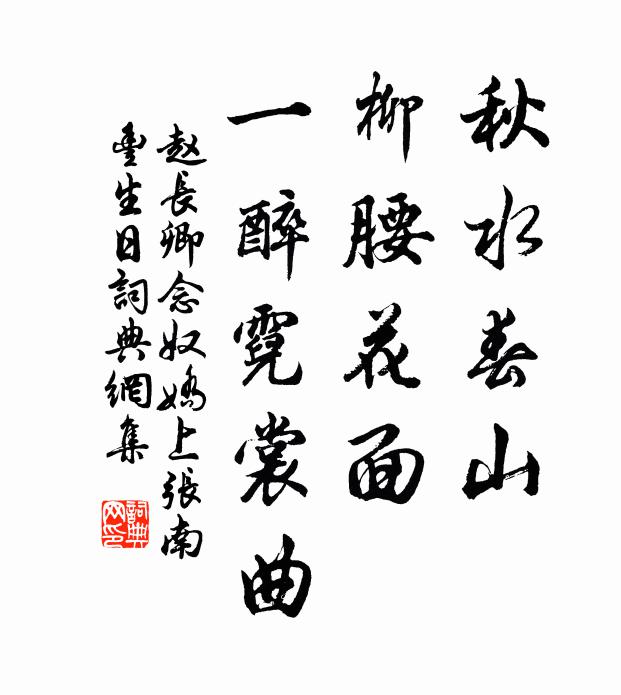 秋水春山
柳腰花面
一醉霓裳曲
赵長卿念奴嬌上張南
豐生日詞典網集
詞典
网印